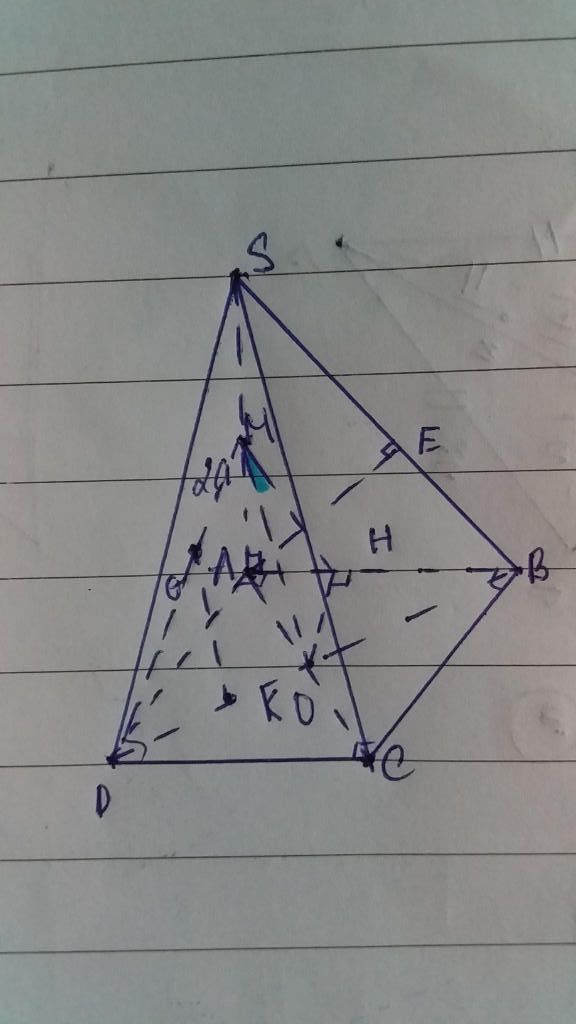 S
M
E
2a
H
A
B
G
K O
C
D